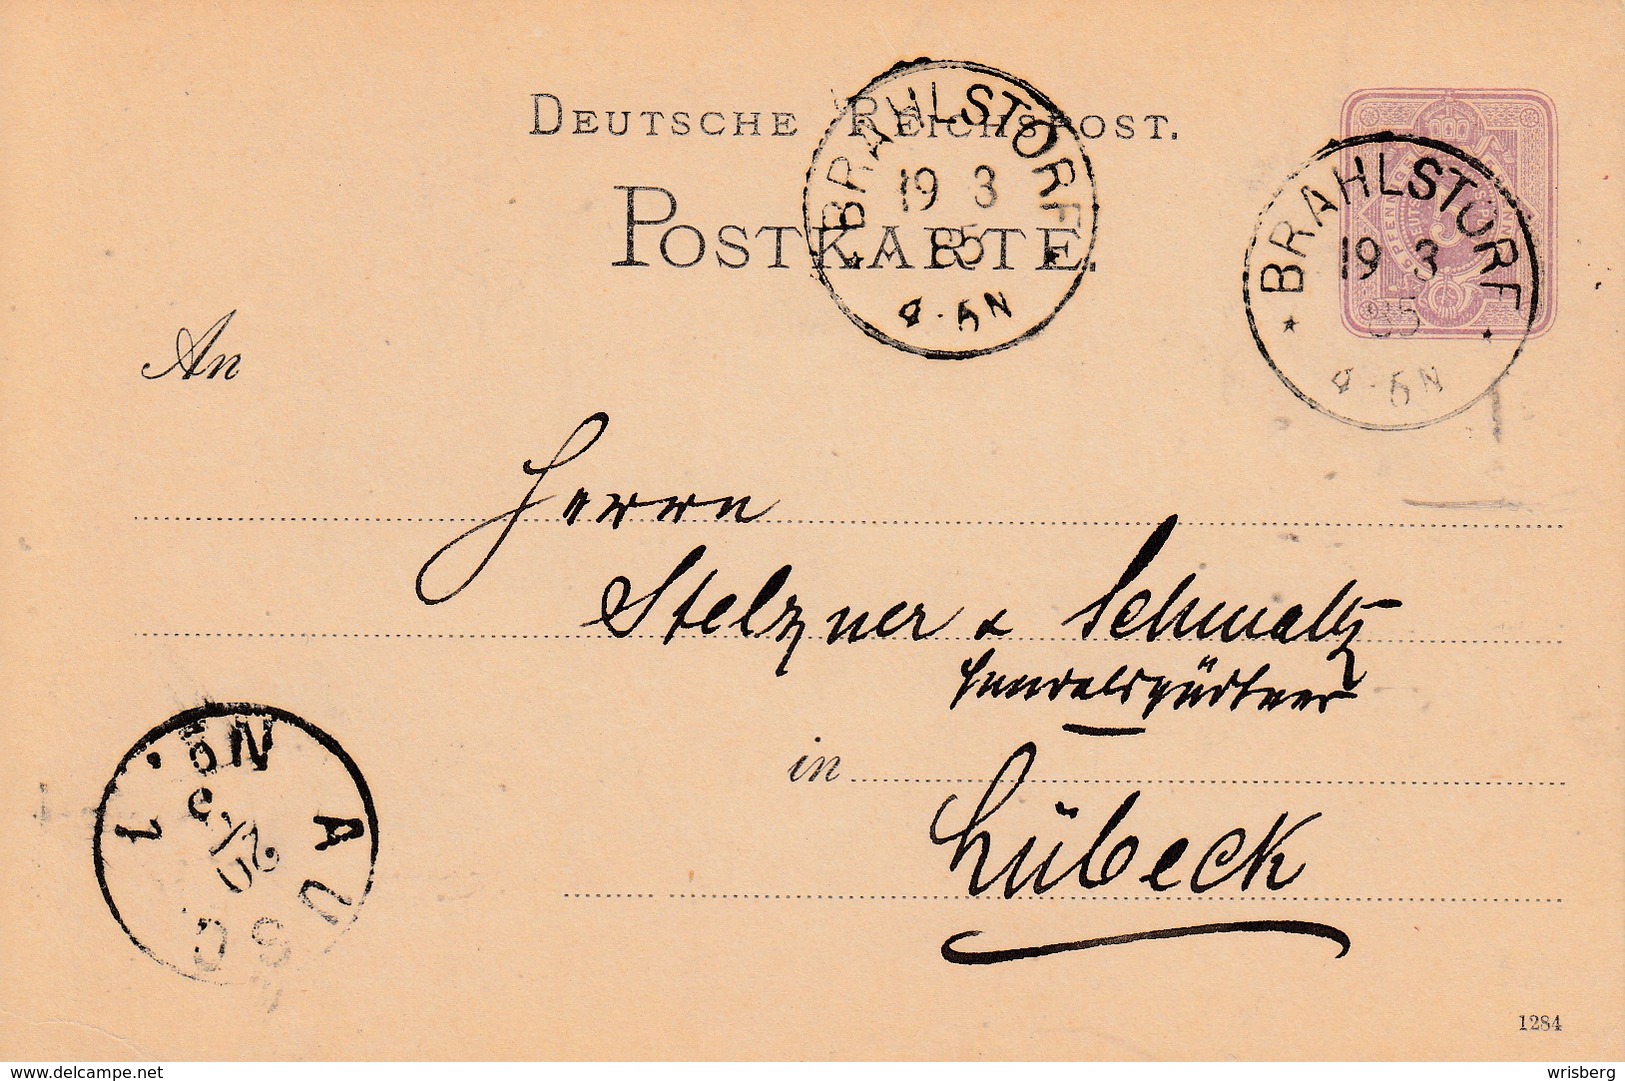 DEUTSCHE REICHSPOST.
POSTKARTE.
BRAHLSTORF
19 3
85
4-5N
BRAHLSTORF
19 3
85
4-5N
An
Herrn
Stelzner & Schmaltz
Handelsgärtner
in
Lübeck
AUSG
No. 1
20/3
1284
delcampe.net
wrisberg